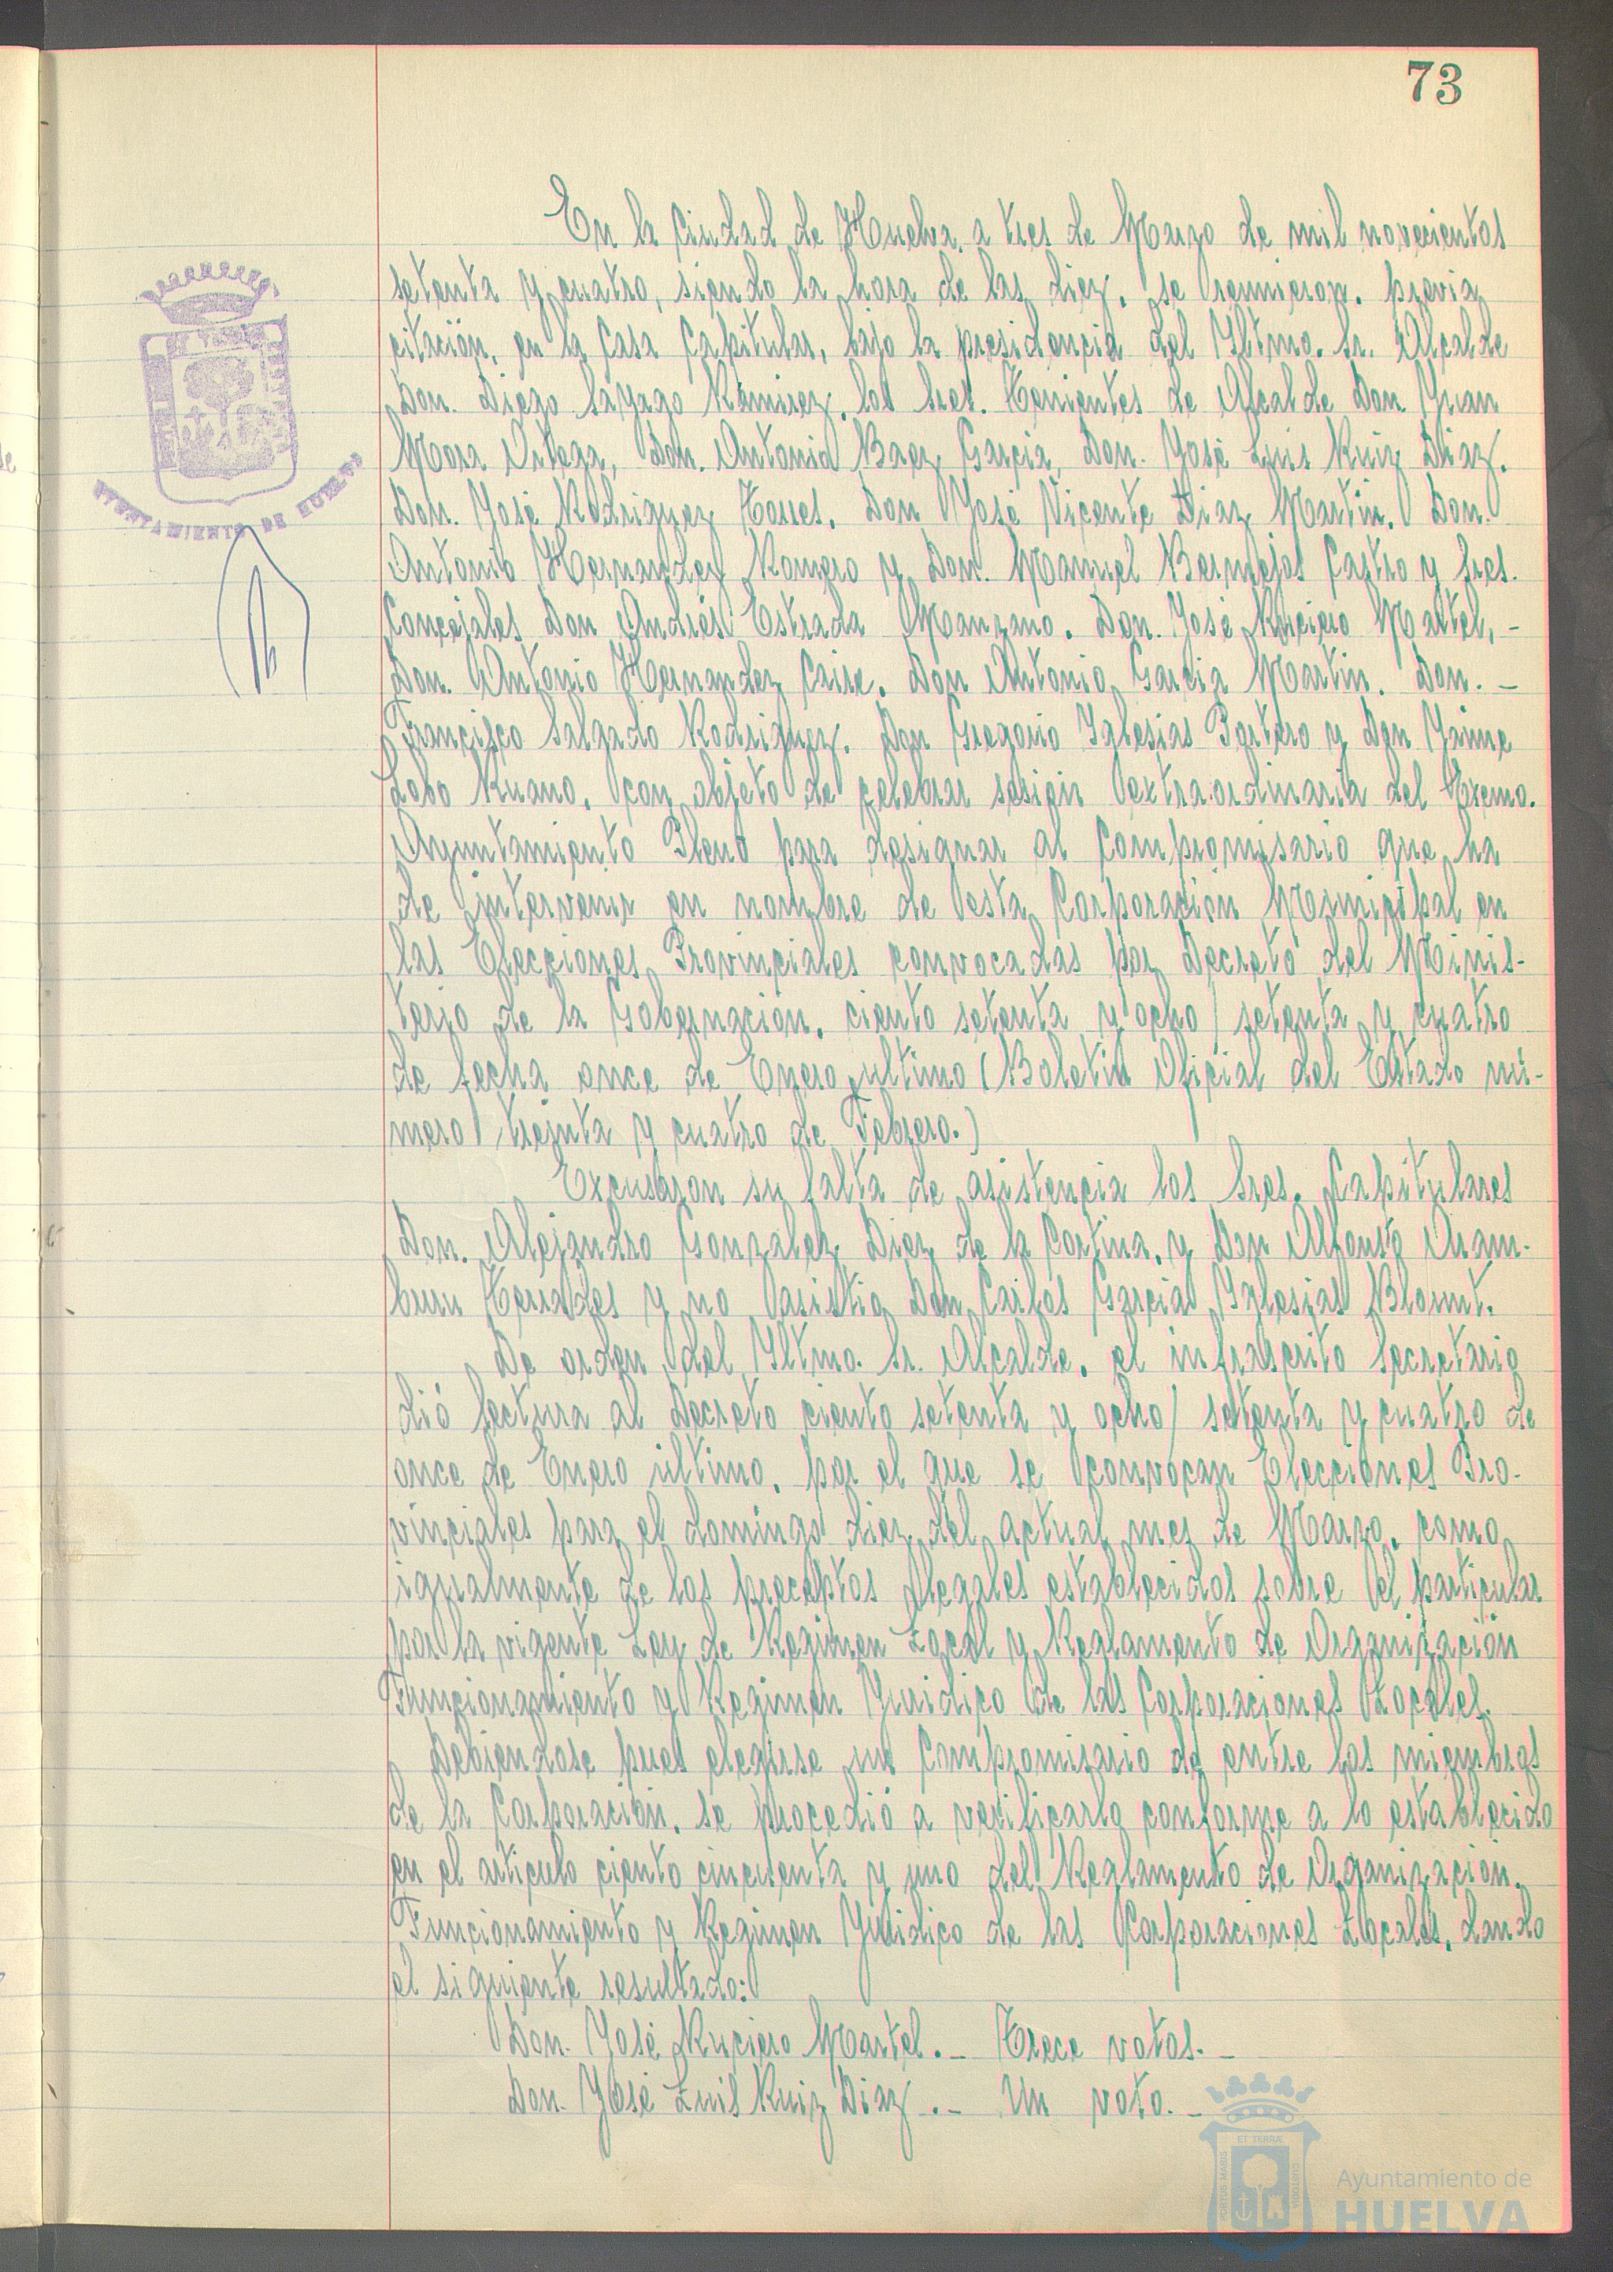 73
En la Ciudad de Huelva, a tres de Marzo de mil novecientos
setenta y cuatro, siendo la hora de las diez, se reunieron, previa
citación, en la Casa Capitular, bajo la presidencia del Yltmo. Sr. Alcalde
Don. Diego Sayago Ramirez, los Sres. Tenientes de Alcalde Don Juan
Mora Ortega, Don. Antonio Baez Garcia, Don. José Luis Ruiz Diaz.
Don. José Rodriguez Torres, Don José Vicente Diaz Martin. Don.
Antonio Hernandez Romero y Don. Manuel Bermejos Castro y Sres.
Concejales Don Andrés Estrada Manzano. Don. José Ruciero Martel, -
Don. Antonio Hernandez Caire. Don Antonio Garcia Martin. Don. -
Francisco Salgado Rodriguez. Don Gregorio Yglesias Portero y Don Jaime
Lobo Ruano, con objeto de celebrar sesión extraordinaria del Excmo.
Ayuntamiento Pleno para designar al Compromisario que ha
de intervenir en nombre de esta Corporación Municipal en
las Elecciones Provinciales convocadas por Decreto del Minis-
terio de la Gobernación, ciento setenta y ocho/ setenta y cuatro
de fecha once de Enero ultimo (Boletin Oficial del Estado nú-
mero treinta y cuatro de Febrero.)
Excusaron su falta de asistencia los Sres. Capitulares
Don. Alejandro Gonzalez Diez de la Cortina, y Don Alfonso Aram-
buru Terrades y no asistio Don Carlos Garcia Yglesias Blount.
De orden del Yltmo. Sr. Alcalde, el infrascrito Secretario
dió lectura al Decreto ciento setenta y ocho/ setenta y cuatro de
once de Enero último, por el que se convocan Elecciones Pro-
vinciales para el domingo diez del actual mes de Marzo, como
igualmente de los preceptos legales establecidos sobre el particular
por la vigente Ley de Regimen Local y Reglamento de Organización
Funcionamiento y Regimen Juridico de las Corporaciones Locales.
Debiendose pues elegirse un Compromisario de entre los miembros
de la Corporación, se procedió a verificarlo conforme a lo establecido
en el articulo ciento cincuenta y uno del Reglamento de Organización,
Funcionamiento y Regimen Juridico de las Corporaciones Locales, dando
el siguiente resultado:
Don. José Ruciero Martel. - Trece votos. -
Don. José Luis Ruiz Diaz. - Un voto. -
AYUNTAMIENTO DE HUELVA
PORTUS MARIS ET TERRÆ CUSTODIA
Ayuntamiento de
HUELVA